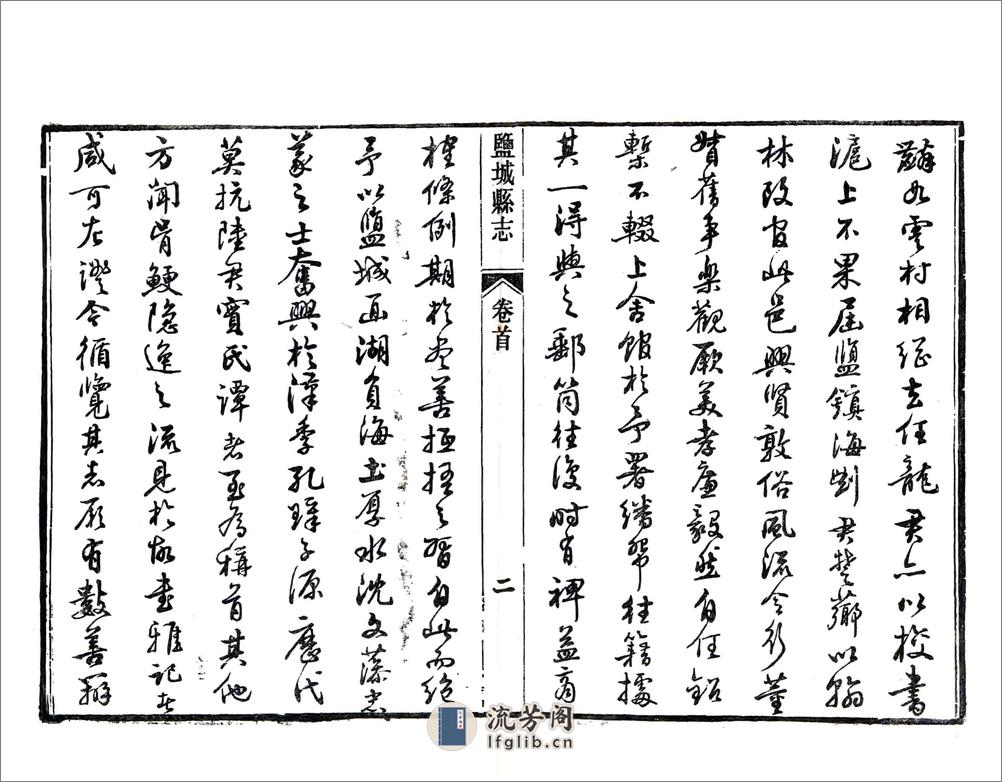 村相继去任龍君亦以校書
滬上不果屆鹽鎮海劉君楚薌以翰
林改官此邑興賢敦俗風流令行
舊事樂觀厥美孝廉毅然自任鉛
槧不輟上舍館於予署繙帑往籍攟
其一得與之郵筒往復時有裨益商
鹽城縣志
卷首
二
榷條例期於盡善挋之習自此而絕
予以鹽城面湖負海土厚水沈文藻忠
義之士奮興於漢季孔璋子源歷代
莫抗陸君實氏譚者至為稱首其他
方聞骨鯁隱逸之流見於故書雅記者
咸可左證今循覽其志厥有數善辯
流芳阁
lfglib.cn